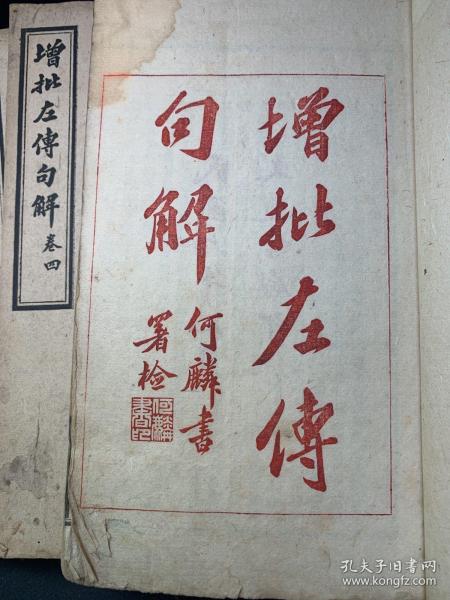 增批左傳
句解
何麟書
署檢
增批左傳句解 卷四
孔夫子旧书网
www.kongfz.com